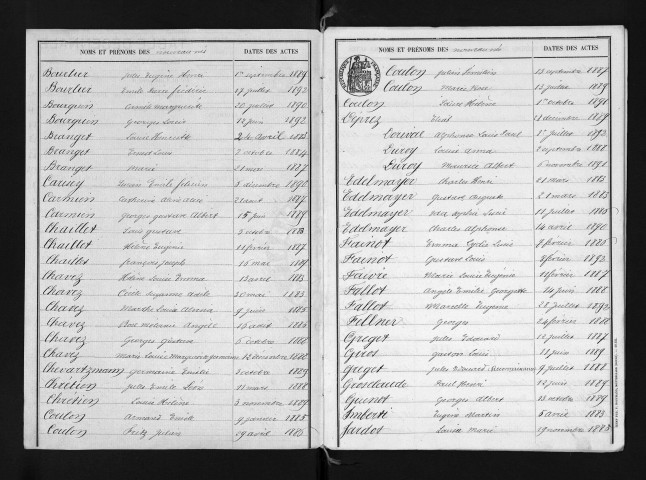 NOMS ET PRÉNOMS DES nouveau nés DATES DES ACTES
Bourlier Jules Eugène Henri 1er septembre 1889
Bourlier Emile Pierre Frédéric 17 juillet 1892
Bourguin Anna Marguerite 20 juillet 1890
Bourguin Georges Louis 12 juin 1892
Branget Louise Henriette 2 avril 1883
Branget Ernest Louis 2 octobre 1884
Branget Marie 21 mai 1887
Lucien Emile 8 décembre 1890
Carmien 2 août 1887
Carmien Georges Gustave Albert 15 juin 1889
Chaillet Louis Gustave octobre 1883
Chaillet Hélène Eugénie 11 février 1887
Chaillet François Joseph 15 mai 1889
Chavez Hélène Louise Emma 13 avril 1883
Chavez Cécile Suzanne Adèle 30 mai 1883
Chavez Marthe Louise 9 juin 1885
Chavez Angèle 10 août 1886
Chavez Georges Gustave 6 octobre 1886
Chavez Marie Louise Marguerite 12 décembre 1886
Chevartzmann Germaine Emilie octobre 1889
Chrétien Jules Emile 11 mars 1888
Chrétien Louise Hélène 3 novembre 1889
Coulon Armand Emile 9 janvier 1885
Coulon Fritz Julien 29 avril 1885
NOMS ET PRÉNOMS DES nouveau nés DATES DES ACTES
Coulon 13 septembre 1887
Coulon Marie Rose 13 juillet 1889
Coulon Louise Hélène 1er octobre 1891
Déprez 18 décembre 1889
Alphonse Louis Paul 1er juillet 1892
Duroy Louise Anna 2 septembre 1888
Duroy Maurice Albert 6 novembre 1891
Edelmayer Charles Henri 21 mars 1883
Eddmayer Gustave Auguste 21 mars 1883
Eddmayer Ida Sophie Lucie 10 juillet 1885
Eddmayer Charles Alphonse 14 avril 1890
Fainot Emma Lydie Louise 9 février 1885
Fainot Gustave Louis 8 février 1892
Faivre Marie Louise Eugénie 11 février 1887
Fallot Angèle Emilie Georgette 14 juin 1888
Fallot Marcelle Eugénie 23 juillet 1892
Fellner Georges 24 février 1888
Greget Jules Edouard 12 juillet 1887
Girot Gaston Louis 21 juin 1889
Greget Jules Edouard 9 juillet 1888
Grosclaude Paul Henri 12 juin 1889
Guenot Georges Albert 13 octobre 1889
Imberti Eugène Martin 5 avril 1883
Jardot Louise Marie 19 novembre 1883